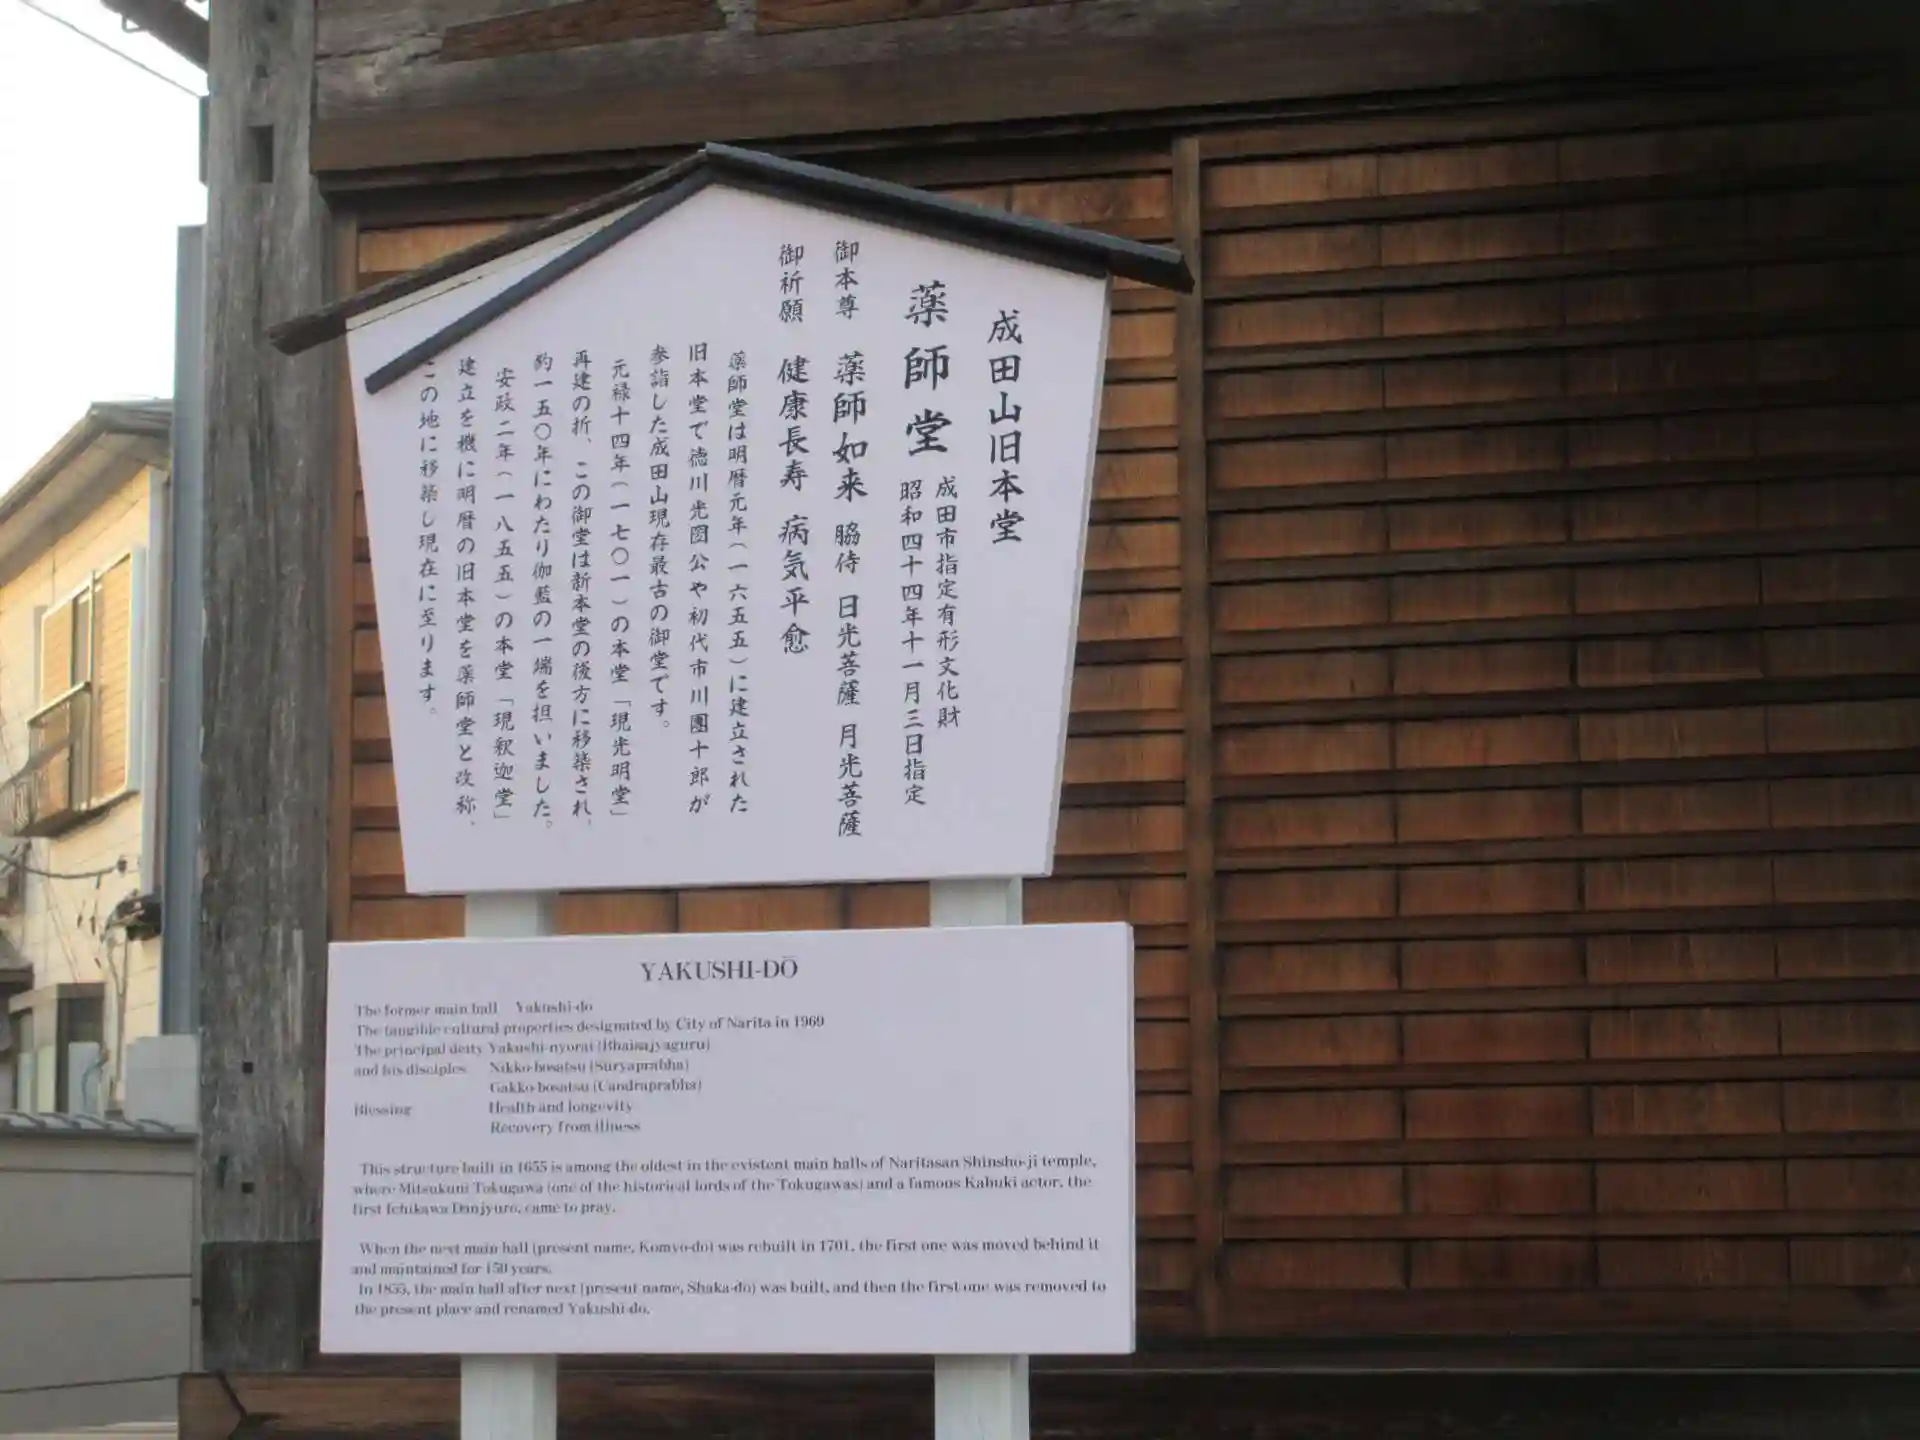 成田山旧本堂
薬師堂
成田市指定有形文化財
昭和四十四年十一月三日指定
御本尊 薬師如来 脇侍 日光菩薩 月光菩薩
御祈願 健康長寿 病気平愈
薬師堂は明暦元年(一六五五)に建立された
旧本堂で徳川光圀公や初代市川團十郎が
参詣した成田山現存最古の御堂です。
元禄十四年(一七〇一)の本堂「現光明堂」
再建の折、この御堂は新本堂の後方に移築され、
約一五〇年にわたり伽藍の一端を担いました。
安政二年(一八五五)の本堂「現釈迦堂」
建立を機に明暦の旧本堂を薬師堂と改称、
この地に移築し現在に至ります。
YAKUSHI-DŌ
The former main hall Yakushi-do
The tangible cultural properties designated by City of Narita in 1969
The principal deity Yakushi-nyorai (Bhaisajyaguru)
and his disciples Nikko-bosatsu (Suryaprabha)
Gakko-bosatsu (Candraprabha)
Blessing Health and longevity
Recovery from illness
This structure built in 1655 is among the oldest in the existent main halls of Naritasan Shinsho-ji temple,
where Mitsukuni Tokugawa (one of the historical lords of the Tokugawas) and a famous Kabuki actor, the
first Ichikawa Danjyuro, came to pray.
When the next main hall (present name, Komyo-do) was rebuilt in 1701, the first one was moved behind it
and maintained for 150 years.
In 1855, the main hall after next (present name, Shaka-do) was built, and then the first one was removed to
the present place and renamed Yakushi-do.